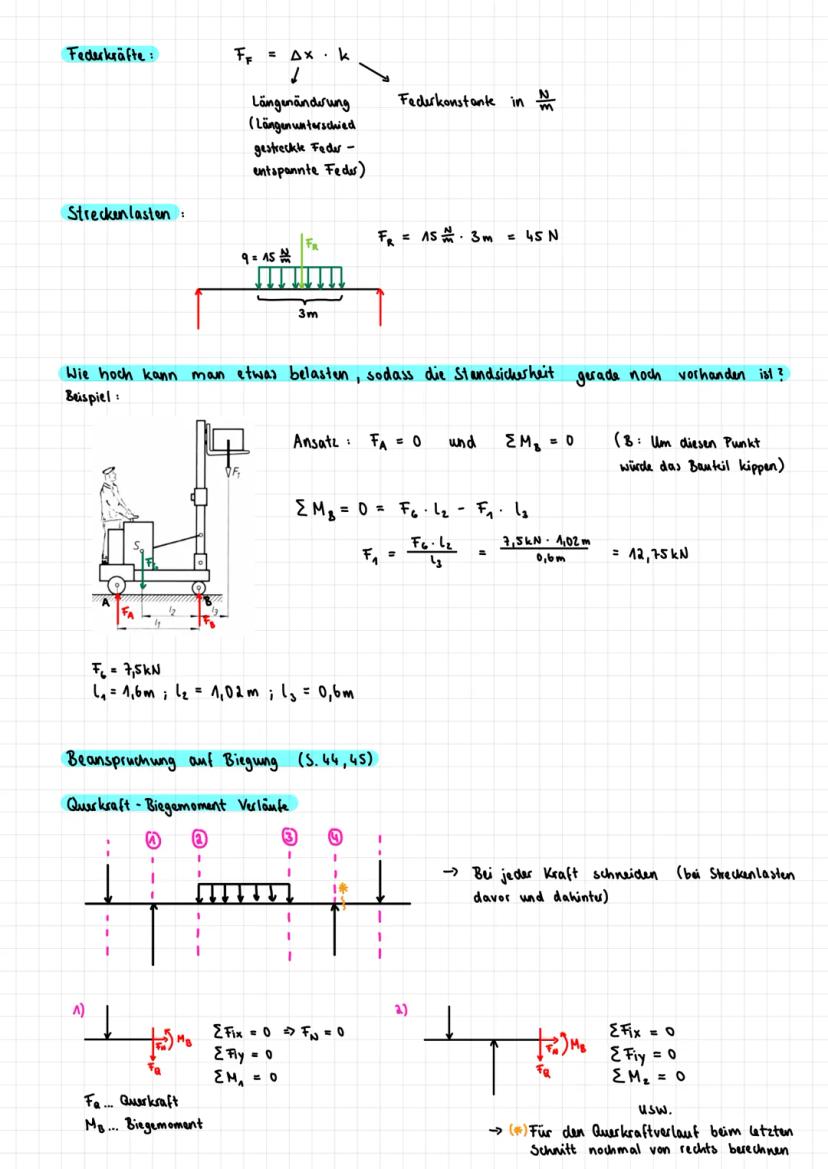 Federkräfte :
F_F = Δx · k
Längenänderung
(Längenunterschied
gestreckte Feder -
entspannte Feder)
Federkonstante in N/m
Streckenlasten :
q = 15 N/m
F_R
3m
F_R = 15 N/m · 3m = 45 N
Wie hoch kann man etwas belasten, sodass die Standsicherheit gerade noch vorhanden ist?
Beispiel :
Ansatz : F_A = 0 und ΣM_B = 0 (B: Um diesen Punkt
würde das Bauteil kippen)
ΣM_B = 0 = F_G · l₂ - F₁ · l₃
F₁ = F_G · l₂ / l₃ = 7,5kN · 1,02m / 0,6m = 12,75kN
F₁
S
A
F_A
l₂
B
F_B
l₃
l₁
F_G = 7,5kN
l₁ = 1,6m ; l₂ = 1,02m ; l₃ = 0,6m
Beanspruchung auf Biegung (S. 44, 45)
Querkraft - Biegemoment Verläufe
① ② ③ ④
*
→ Bei jeder Kraft schneiden (bei Streckenlasten
davor und dahinter)
1)
F_N
M_B
F_Q
ΣFix = 0 => F_N = 0
ΣFiy = 0
ΣM₁ = 0
F_Q ... Querkraft
M_B ... Biegemoment
2)
F_N
M_B
F_Q
ΣFix = 0
ΣFiy = 0
ΣM₂ = 0
usw.
→ (*) Für den Querkraftverlauf beim letzten
Schnitt nochmal von rechts berechnen